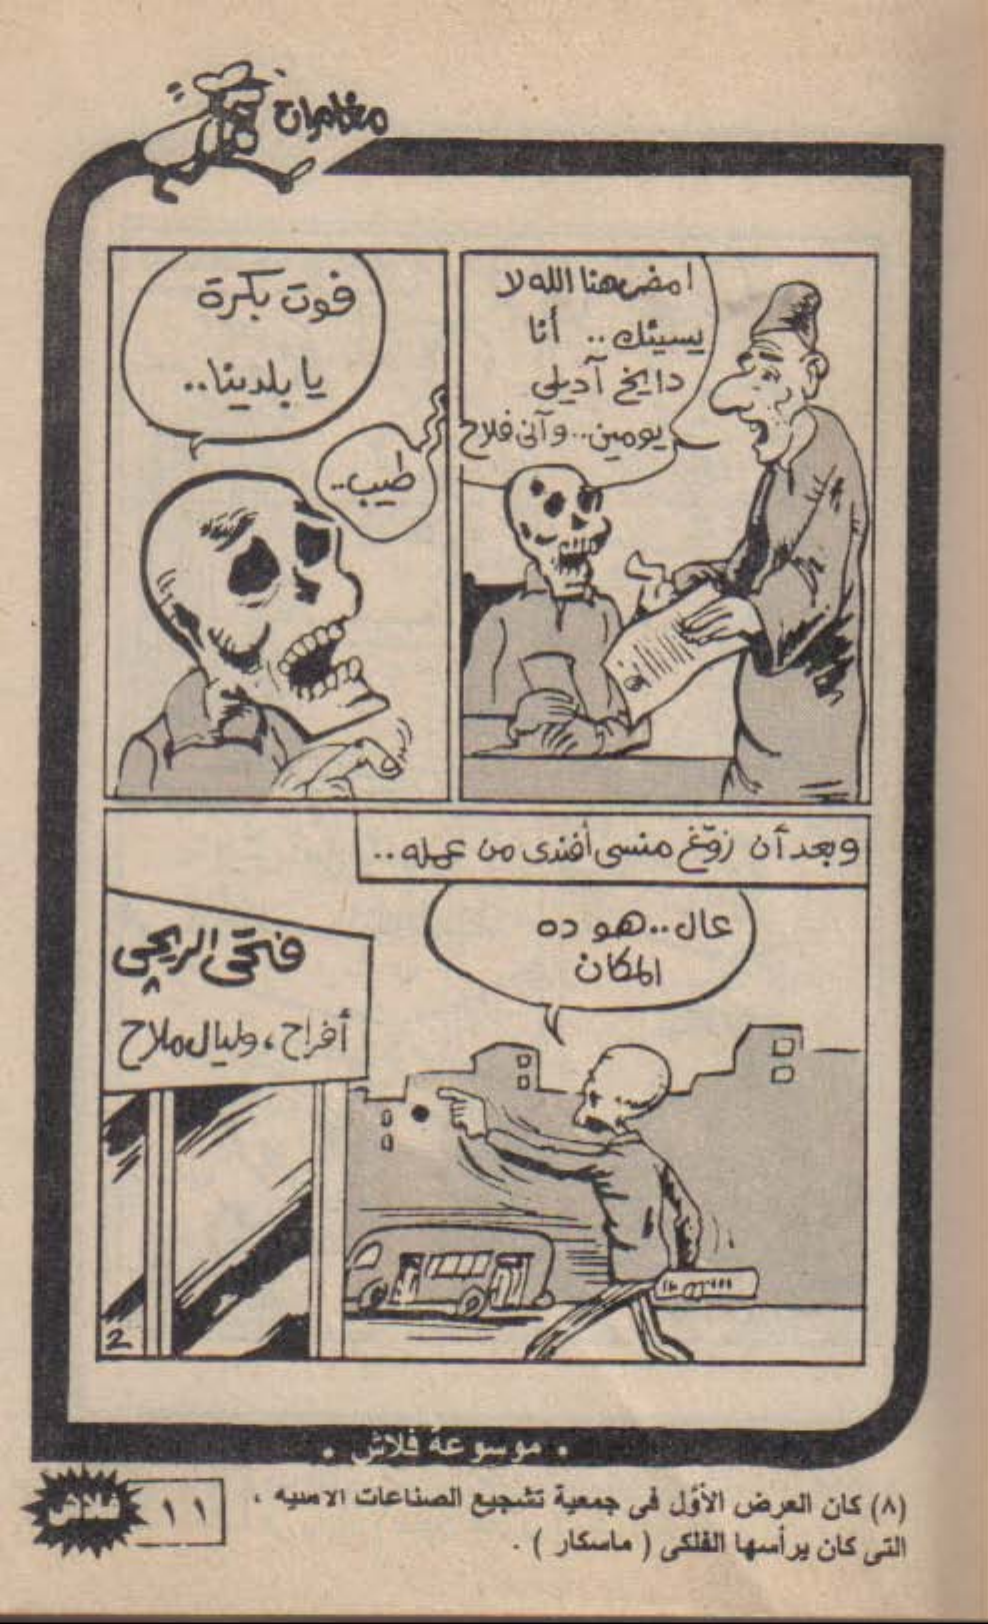 مغامرات
امضى هنا الله لا
يسيئك .. أنا
دايخ آديلى
يومين .. وآنى فلاح
فوت بكرة
يا بلدينا ..
طيب ..
وبعد أن زوّغ منسى أفندى من عمله ..
عال .. هو ده
المكان
فتحى الريحى
أفراح ، وليال ملاح
2
• موسوعة فلاش •
(٨) كان العرض الأوّل فى جمعية تشجيع الصناعات الامسيه ،
التى كان يرأسها الفلكى ( ماسكار ) .
١١
فلاش